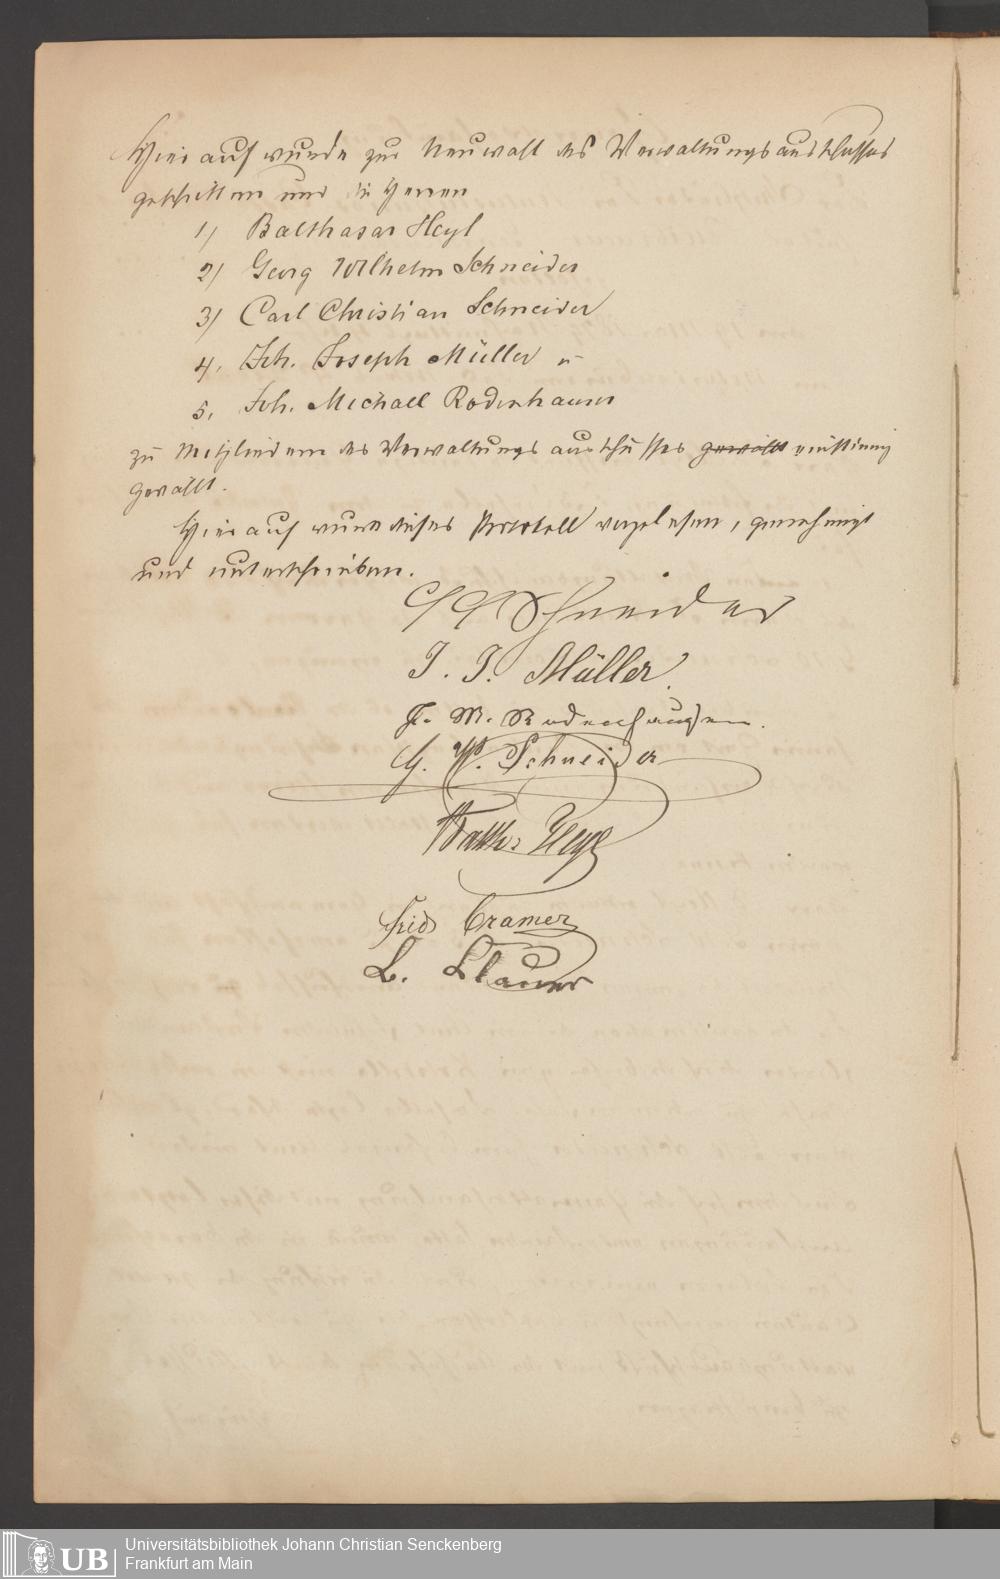 Hierauf wurde zur Neuwahl des Verwaltungsausschusses
geschritten und die Herren
1) Balthasar Heyl
2) Georg Wilhelm Schneider
3) Carl Christian Schneider
4. Joh. Joseph Müller u
5. Joh. Michael Rodenhausen
zu Mitgliedern des Verwaltungsausschusses gewählt einstimmig
gewählt.
Hierauf wurde dieses Protokoll vorgelesen, genehmigt
und unterschrieben.
C C Schneider
J. J. Müller.
J. M. Rodenhausen.
G. W. Schneider
Balth. Heyl
Frid Cramer
L. Clauer
Universitätsbibliothek Johann Christian Senckenberg
Frankfurt am Main
UB